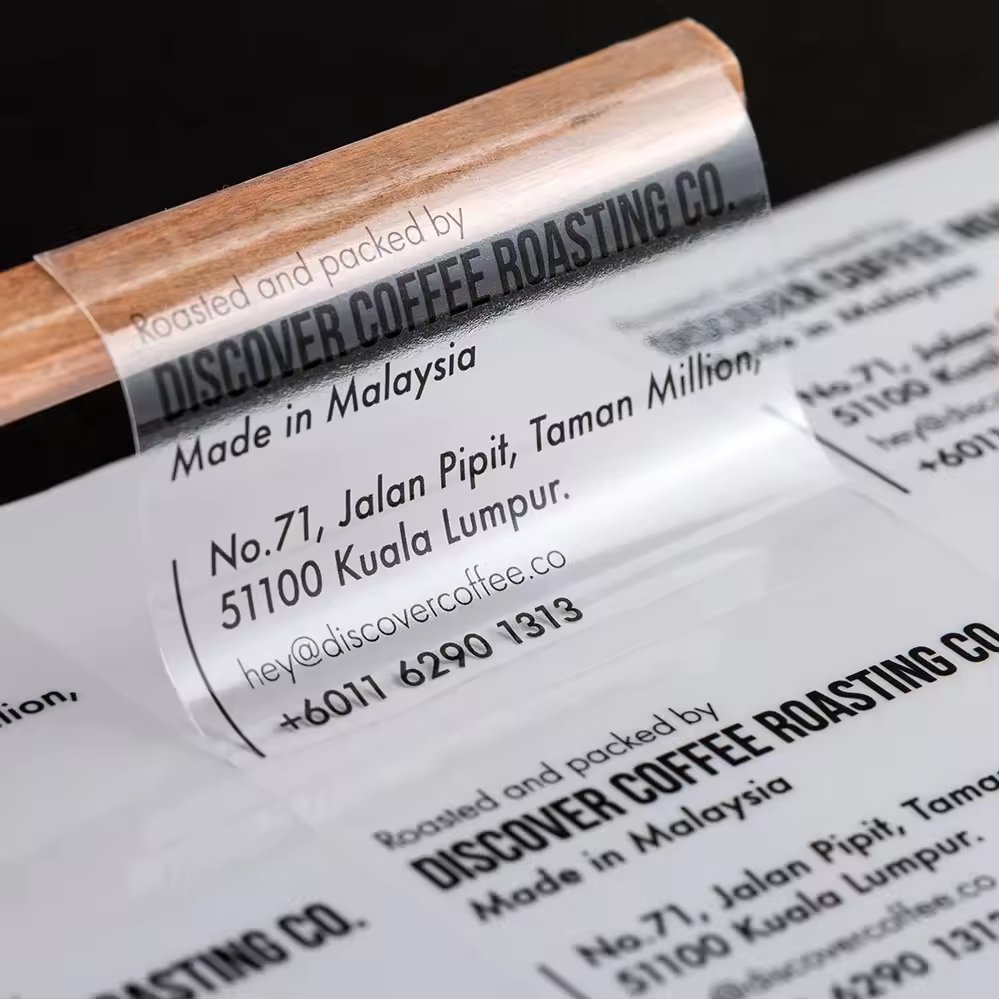 Roasted and packed by
DISCOVER COFFEE ROASTING CO.
Made in Malaysia
No.71, Jalan Pipit, Taman Million,
51100 Kuala Lumpur.
hey@discovercoffee.co
+6011 6290 1313
No.71, Jalan
51100
+6011
lion,
Roasted and packed by
DISCOVER COFFEE ROASTING CO.
Made in Malaysia
No.71, Jalan Pipit, Tama
51100 Kuala Lumpur.
@discovercoffee.co
6290 131
ASTING CO.